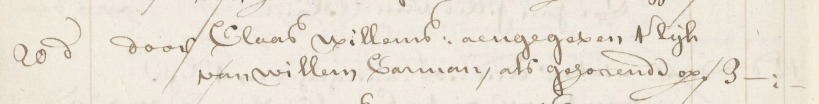 20 d door Claas willems: aengegeven t lijk
van willem Carman, als gehorende op 3 –:–